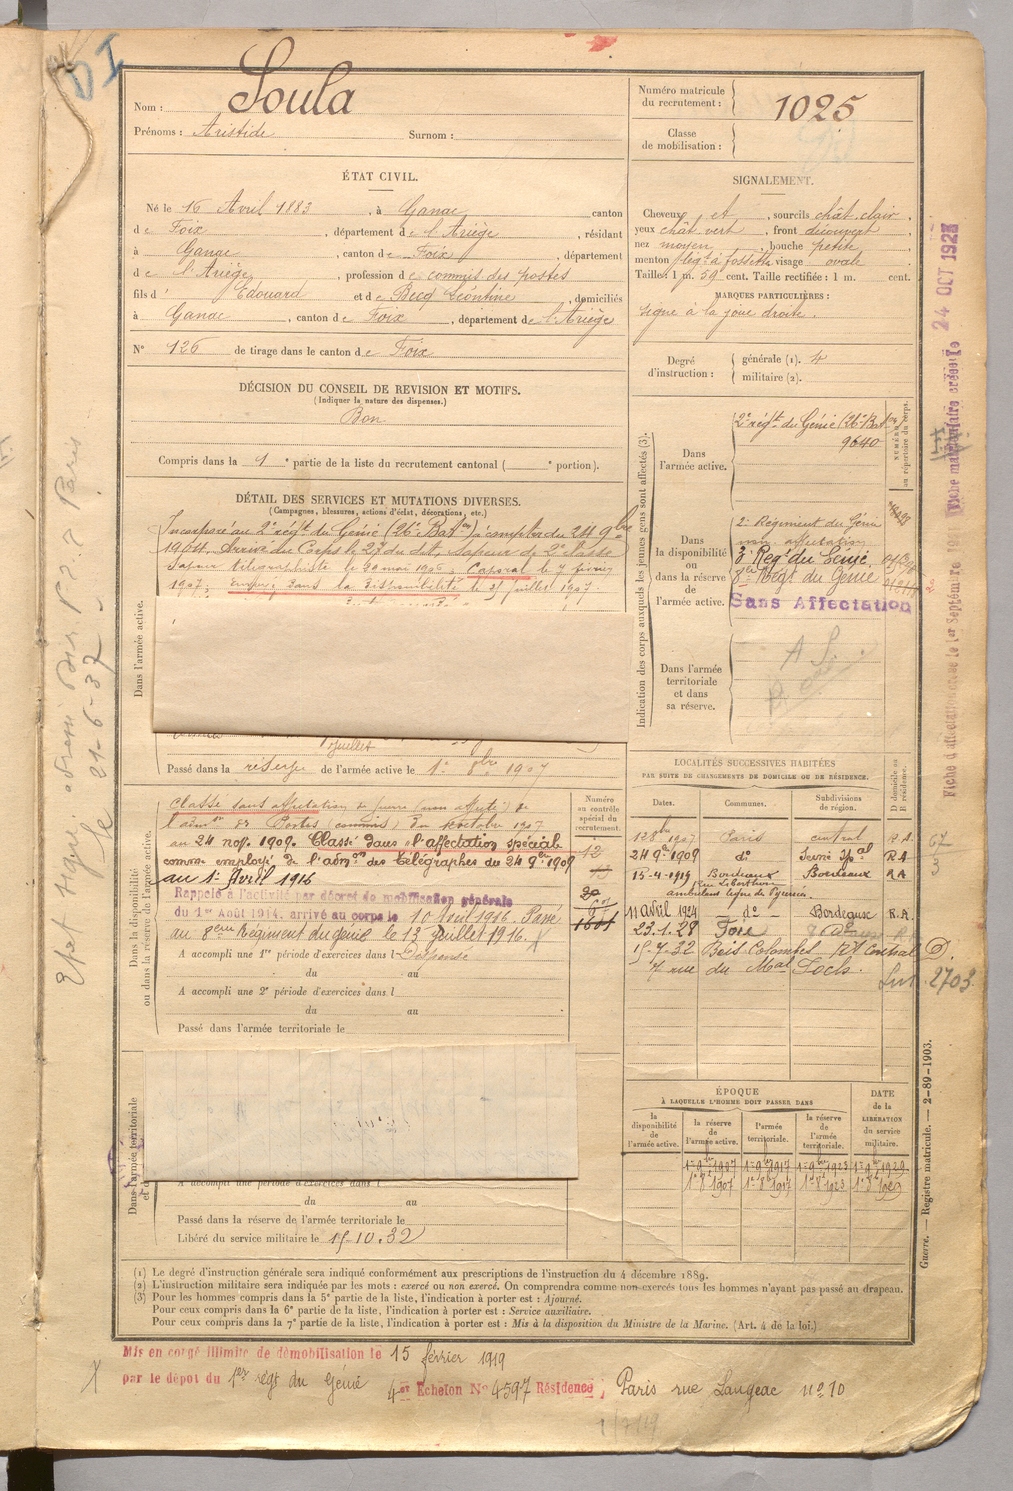 D I
Nom : Soula
Prénoms : Aristide Surnom :
Numéro matricule du recrutement : 1025
Classe de mobilisation :
ÉTAT CIVIL.
Né le 16 Avril 1883, à Ganac canton
de Foix, département de l'Ariège, résidant
à Ganac, canton de Foix, département
de l'Ariège, profession de commis des postes
fils d' Edouard et de Becq Léontine, domiciliés
à Ganac, canton de Foix, département de l'Ariège
N° 126 de tirage dans le canton de Foix
SIGNALEMENT.
Cheveux et, sourcils chât. clair,
yeux chât vert, front découvert
nez moyen, bouche petite,
menton à fossette visage ovale
Taille : 1 m. 59 cent. Taille rectifiée : 1 m. cent.
MARQUES PARTICULIÈRES :
signe à la joue droite.
Degré d'instruction : générale (1). 4
militaire (2).
DÉCISION DU CONSEIL DE REVISION ET MOTIFS.
(Indiquer la nature des dispenses.)
Bon
Compris dans la 1e partie de la liste du recrutement cantonal ( e portion).
DÉTAIL DES SERVICES ET MUTATIONS DIVERSES.
(Campagnes, blessures, actions d'éclat, décorations, etc.)
Incorporé au 2e régt. du Génie (26e Baton) à compter du 24 9bre
1904. Arrivé au Corps le 27 du dit, sapeur de 2e classe
Sapeur télégraphiste le 20 mai 1906, Caporal le 7 février
1907, Envoyé dans la disponibilité le 31 juillet 1907.
Dans l'armée active.
juillet
Passé dans la réserve de l'armée active le 1er 8bre 1907
Indication des corps auxquels les jeunes gens sont affectés (3).
NUMÉRO au répertoire du corps.
Dans l'armée active.
2e régt. du Génie (26e Baton)
9640
Dans la disponibilité ou dans la réserve de l'armée active.
2e Régiment du Génie
non affectation
8e Régt du Génie.
8e Régt du Génie
Sans Affectation
Dans l'armée territoriale et dans sa réserve.
Dans la disponibilité ou dans la réserve de l'armée active.
Classé sans affectation de guerre (non affecté) de
l'admon des Postes (commis) du octobre 1907
au 24 nov. 1909. Classé dans l'affectation spéciale
comme employé de l'admon des télégraphes du 24 9bre 1909
au 1er Avril 1916
Rappelé à l'activité par décret de mobilisation générale
du 1er Août 1914, arrivé au corps le 10 Avril 1916. Passé
au 8eme Régiment du génie le 13 Juillet 1916.
A accompli une 1re période d'exercices dans l Dispensé
du au
A accompli une 2e période d'exercices dans l
du au
Passé dans l'armée territoriale le
Numéro au contrôle spécial du recrutement.
12
13
1601
LOCALITÉS SUCCESSIVES HABITÉES
PAR SUITE DE CHANGEMENTS DE DOMICILE OU DE RÉSIDENCE.
Dates. Communes. Subdivisions de région. D domicile ou R résidence.
12 8bre 1907 Paris central R.A.
24 9bre 1909 do Seine R A
15-4-1919 Bordeaux Bordeaux R A
11 Avril 1924 do Bordeaux R.A.
23.1.28 Foix
15-7-32 Bois Colombes Rt Central D.
7 rue du Mal Foch.
2703
Dans l'armée territoriale
A accompli une période d'exercices dans l
du au
Passé dans la réserve de l'armée territoriale le
Libéré du service militaire le 15-10.32
ÉPOQUE
À LAQUELLE L'HOMME DOIT PASSER DANS
la disponibilité de l'armée active. la réserve de l'armée active. l'armée territoriale. la réserve de l'armée territoriale. DATE de la LIBÉRATION du service militaire.
1er 9bre 1907 1er 9bre 1917 1er 9bre 1923 1er 9bre 1929
1er 8bre 1907 1er 8bre 1917 1er 8bre 1923 1er 8bre 1929
(1) Le degré d'instruction générale sera indiqué conformément aux prescriptions de l'instruction du 4 décembre 1889.
(2) L'instruction militaire sera indiquée par les mots : exercé ou non exercé. On comprendra comme non-exercés tous les hommes n'ayant pas passé au drapeau.
(3) Pour les hommes compris dans la 5e partie de la liste, l'indication à porter est : Ajourné.
Pour ceux compris dans la 6e partie de la liste, l'indication à porter est : Service auxiliaire.
Pour ceux compris dans la 7e partie de la liste, l'indication à porter est : Mis à la disposition du Ministre de la Marine. (Art. 4 de la loi.)
Mis en congé illimité de démobilisation le 15 février 1919
par le dépôt du 1er régt du Génie 4e Echelon N° 4597 Résidence ; Paris rue Langeac no 10
Guerre. — Registre matricule. — 2-89-1903.
24 OCT 1927
le 21-6-37